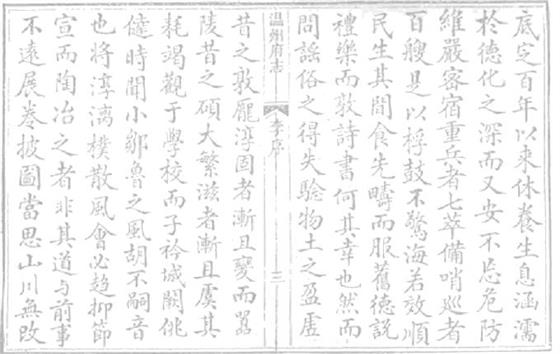 底定百年以來休養生息涵濡
於德化之深而又安不忘危防
維嚴密宿重兵者七萃備哨巡者
百艘是以桴鼓不驚海若效順
民生其間食先疇而服舊德說
禮樂而敦詩書何其幸也然而
問謠俗之得失驗物土之盈虛
温州府志
李序
三
昔之敦龐淳固者漸且變而囂
陵昔之碩大繁滋者漸且虞其
耗竭觀于學校而子衿城闕佻
㒓時聞小鄒魯之風胡不嗣音
也將淳漓樸散風會必趨抑節
宣而陶冶之者非其道與前事
不遠展卷披圖當思山川無改